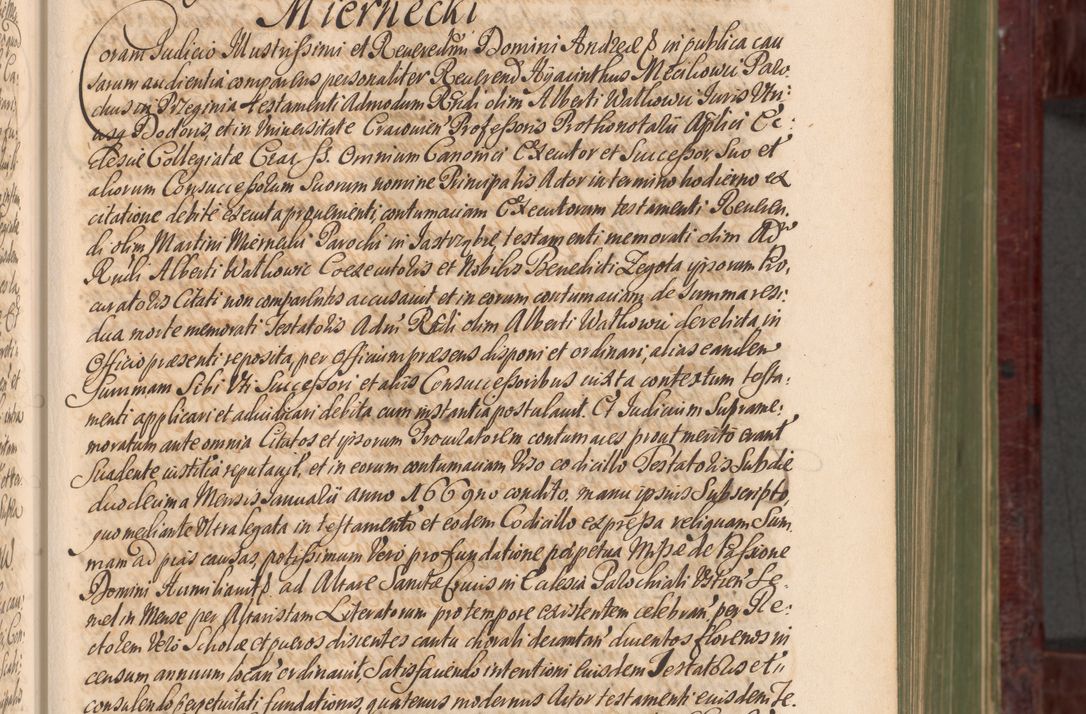 Miernecki
Coram Judicio Illustrissimi et Reverendissimi Domini Andreæ in publica cau
sarum audientia comparens personaliter Reverend Hyacinthus Mecihowic Paro:
chus in Przeginia testamenti Admodum Rndi olim Alberti Wathowic Juris Utri:
usq Doctoris, et in Universitate Cracovien Professoris Prothonotarii Aplici Ec:
clesiæ Collegiatæ Crac SS. Omnium Canonici Executor et Successor Suo et
aliorum Consuccessorum Suorum nomine Principalis Actor in termino hodierno ex
citatione debite executa provenienti, contumaciam Executorum testamenti Reveren,
di olim Martini Miernecki Parochi in Jastrzybie, testamenti memorati olim Ad
Rndi Alberti Wathowic Coexecutoris et Nobilis Benedicti Zegota ipsorum Pro,
curatoris Citati non comparentes accusavit et in eorum contumaciam de summa resi:
dua morte memorati Testatoris Adm Rndi olim Alberti Wathowic derelicta, in
Officio præsenti reposita, per Officium præsens disponi et ordinari, alias eandem
Summam Sibi Uti Successori et aliis Consuccessoribus iuxta contextum testa:
menti applicari et adiudicari debita cum instantia postulavit. Et Judicium Suprame:
moratum ante omnia Citatos et ipsorum Procuratorem contumaces prout merito erant
Suadente iustitia reputavit, et in eorum contumaciam Viso codicillo Testatoris Sub die
duodecima Mensis Januarii anno 1669no condito, manu ipsius Subscripto,
quo mediante Ultra legata in testamento et eodem Codicillo expressa reliquam Sum
mam ad pias causas, potissimum Vero pro fundatione perpetua Missæ de Passione
Domini Humiliavit ad Altare Sanctæ Crucis in Ecclesia Parochiali Se:
mel in Mense per Altaristam Literatorum pro tempore existentem celebran per Re:
ctorem Vero Scholæ et pueros discentes cantu chorali decantan ducentos florenos in
censum annuum locan ordinavit, Satisfaciendo intentioni eiusdem Testatoris et
consulendo perpetuitati fundationis, quatenus modernus Actor testamenti eiusdem Te.